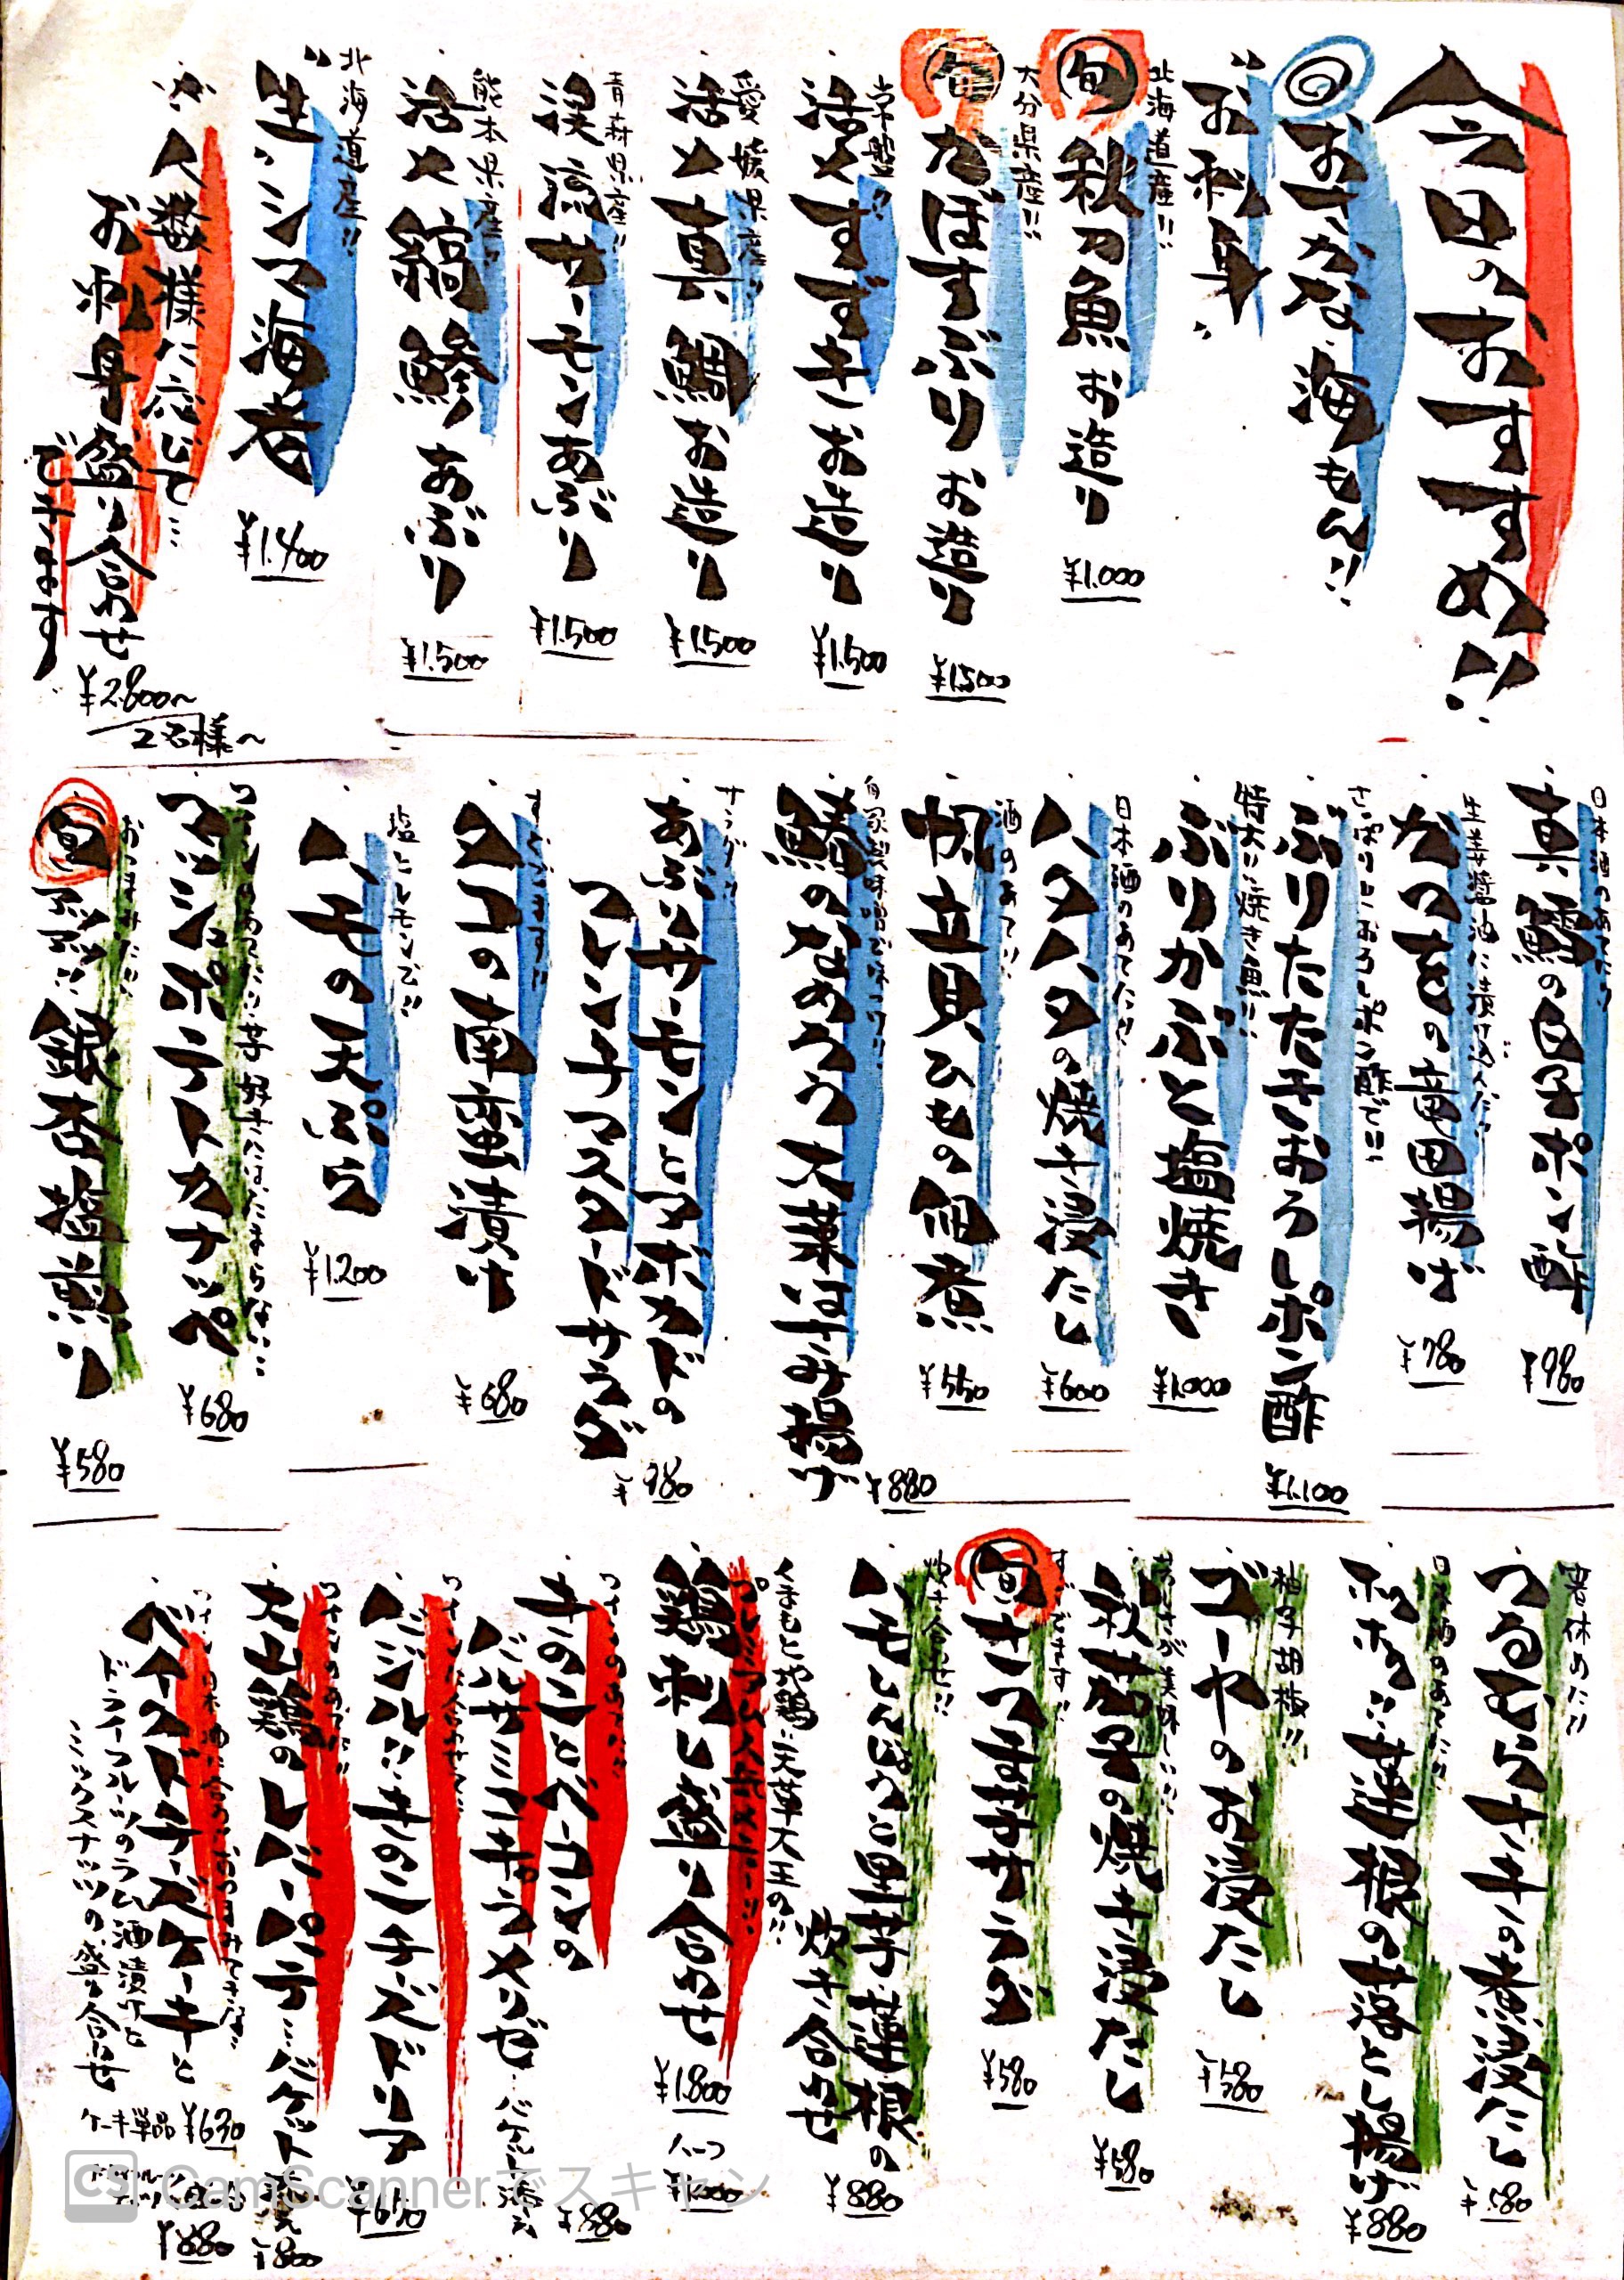 今日のおすすめ!!
◎おさかな、海もん!!
"お刺身"
北海道産!!
旬 秋刀魚お造り
¥1.000
大分県産!!
旬 かぼすぶりお造り
¥1500
常磐!!
活〆すずきお造り
¥1.500
愛媛県産!!
活〆真鯛お造り
¥1.500
青森県産!!
深浦サーモンあぶり
¥1.500
熊本県産!!
活〆縞鯵あぶり
¥1.500
北海道産!!
"生"シマ海老
¥1.400
人数様に応じて…
お刺身盛り合わせ
できます
¥2.800〜
2名様〜
日本酒のあてに!!
真鱈の白子ポン酢
¥980
生姜醤油に漬け込んだ!!
かつをの竜田揚げ
¥780
さっぱりとおろしポン酢で!!
ぶりたたきおろしポン酢
¥1.100
特大!!焼き魚!!
ぶりかぶと塩焼き
¥1.000
日本酒のあてに!!
ハタハタの焼き浸たし
¥600
酒のあて!!
帆立貝ひもの佃煮
¥550
自家製味噌で味つけ!!
鯵のなめろう大葉はさみ揚げ
¥880
サラダ!!
あぶりサーモンとアボカドの
フレンチマスタードサラダ
¥980
すぐでます!!
タコの南蛮漬け
¥680
塩とレモンで!!
ハモの天ぷら
¥1.200
ワインのあてに!!芋好きにはたまらない…
マッシュポテトカナッペ
¥680
おつまみに!!
旬 銀杏塩煎り
¥580
箸休めに!!
つるむらさきの煮浸たし
¥580
日本酒のあてに!!
ホクホク!!蓮根の落とし揚げ
¥880
柚子胡椒!!
ゴーヤのお浸たし
¥580
秋茄子の焼き浸たし
¥580
すぐでます!!
旬 さつま芋サラダ
¥580
炊き合わせ!!
ハモしんじょと里芋、蓮根の
炊き合わせ
¥880
くまもと地鶏!!天草大王の!!
プレミアム人気メニュー!!
鶏刺し盛り合わせ
¥1.800
ハーフ
¥1.000
ワインのあてに!!
きのことベーコンの
バルサミコキャラメリゼ
…バケット添え
¥880
バジル!!きのこチーズドリア
¥650
ワインのあてに!!
大山鶏のレバーパテ…バケット添え
¥800
ベイクドチーズケーキと
ドライフルーツのラム酒漬けと
ミックスナッツの盛り合わせ
ケーキ単品 ¥630
¥880
CS CamScannerでスキャン